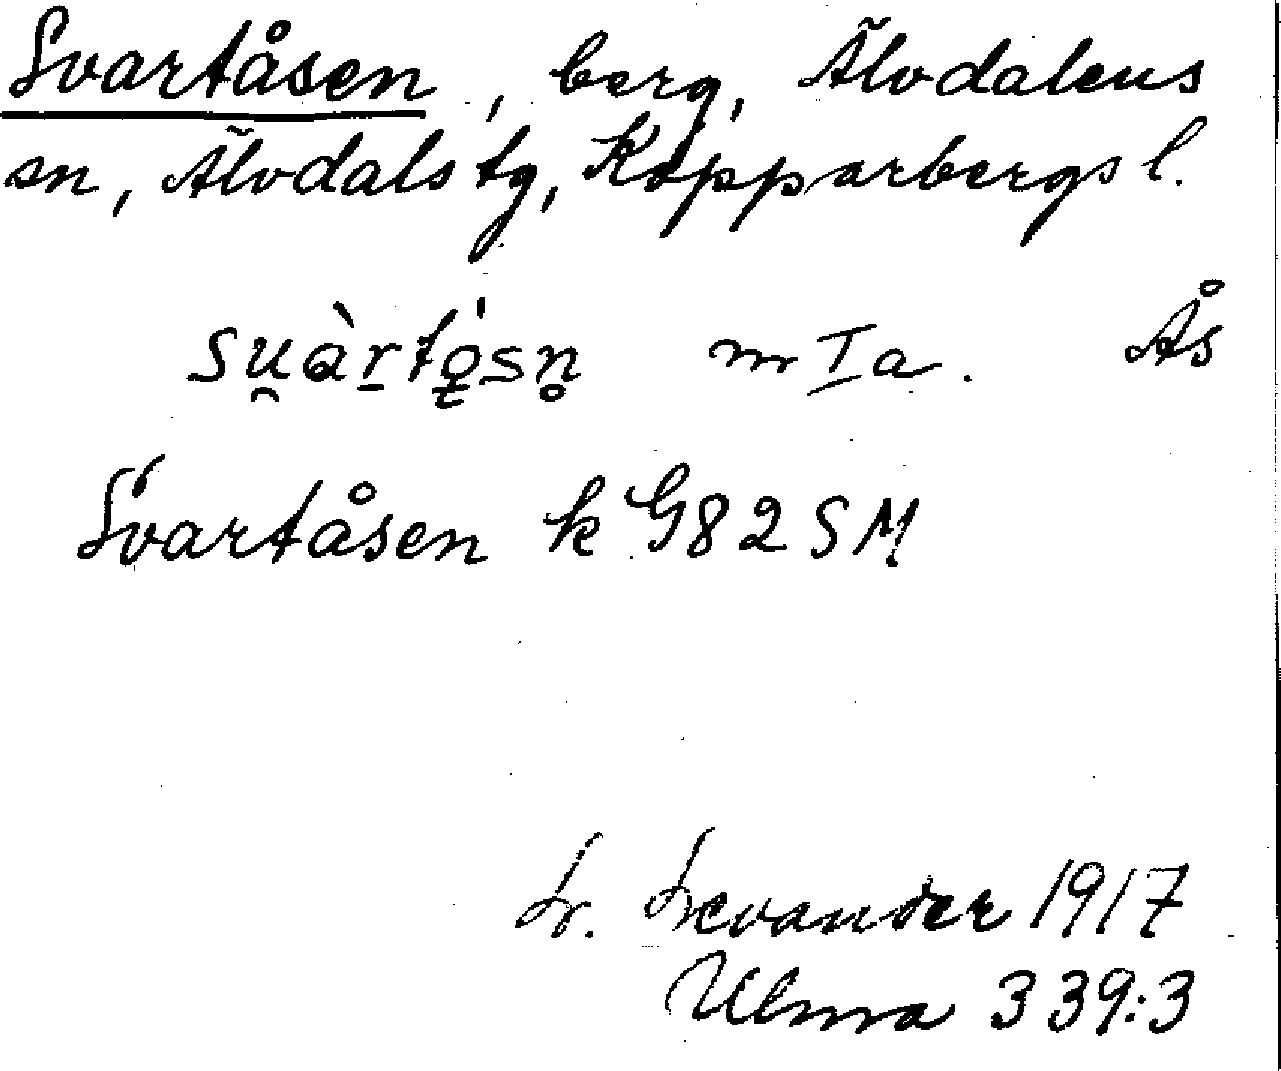 Svartåsen, berg, Älvdalens
sn, Älvdals tg, Kopparbergs l.
su̯àr̠tǫ̀sn̥ m Ia. Ås
Svartåsen k G82SM
L. Levander 1917
Ulma 339:3